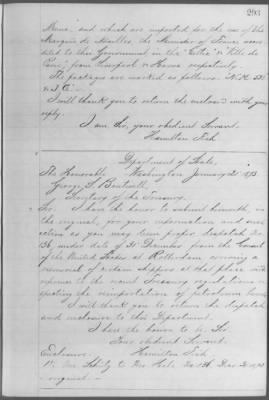 293
and which are imported for the use of the
Marquis de Noailles, the Minister of France accre-
dited to this Government in the "Celtic" & "Ville de
Paris", from Liverpool & Havre respectively.
The packages are marked as follows:
I will thank you to return the enclosed with your
reply.
I am Sir, your obedient Servant.
Hamilton Fish
Department of State.
The Honorable Washington January 21
George S. Boutwell,
Secretary of the Treasury.
Sir. I have the honor to submit herewith, in
the original, for your information and such
action as you may deem proper despatch No.
136, under date of 31 December from the Consul
of the United States at Rotterdam covering a
memorial of certain shippers at that place with
reference to the recent Treasury regulations re-
specting the importation of petroleum barrels.
I will thank you to return the despatch
and enclosure to this Department.
I have the honor to be, Sir,
Your obedient Servant.
Enclosures: Hamilton Fish
Mr. to Mr. No. 136 Dec. 31
original